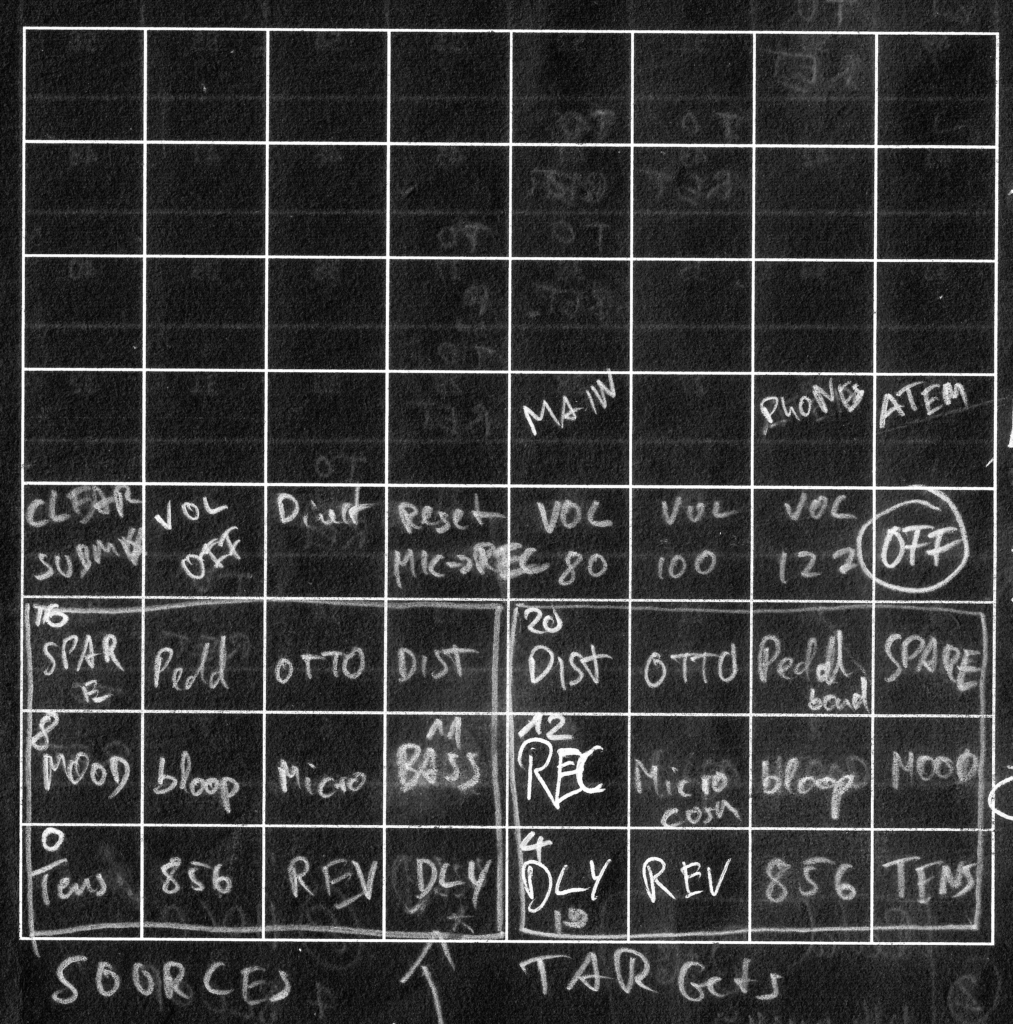 MAIN PHONES ATEM
CLEAR VOL Direct Reset VOL VOL VOL OFF
SUBMIX OFF MIC->REC 80 100 122
16 20
SPAR Pedd OTTO DIST DIST OTTO Pedd SPARE
E board
8 11 12
MOOD bloop Micro BASS REC Micro bloop MOOD
cosm
0 4
Tens 856 REV DLY DLY REV 856 TENS
19
SOORCES TARGets